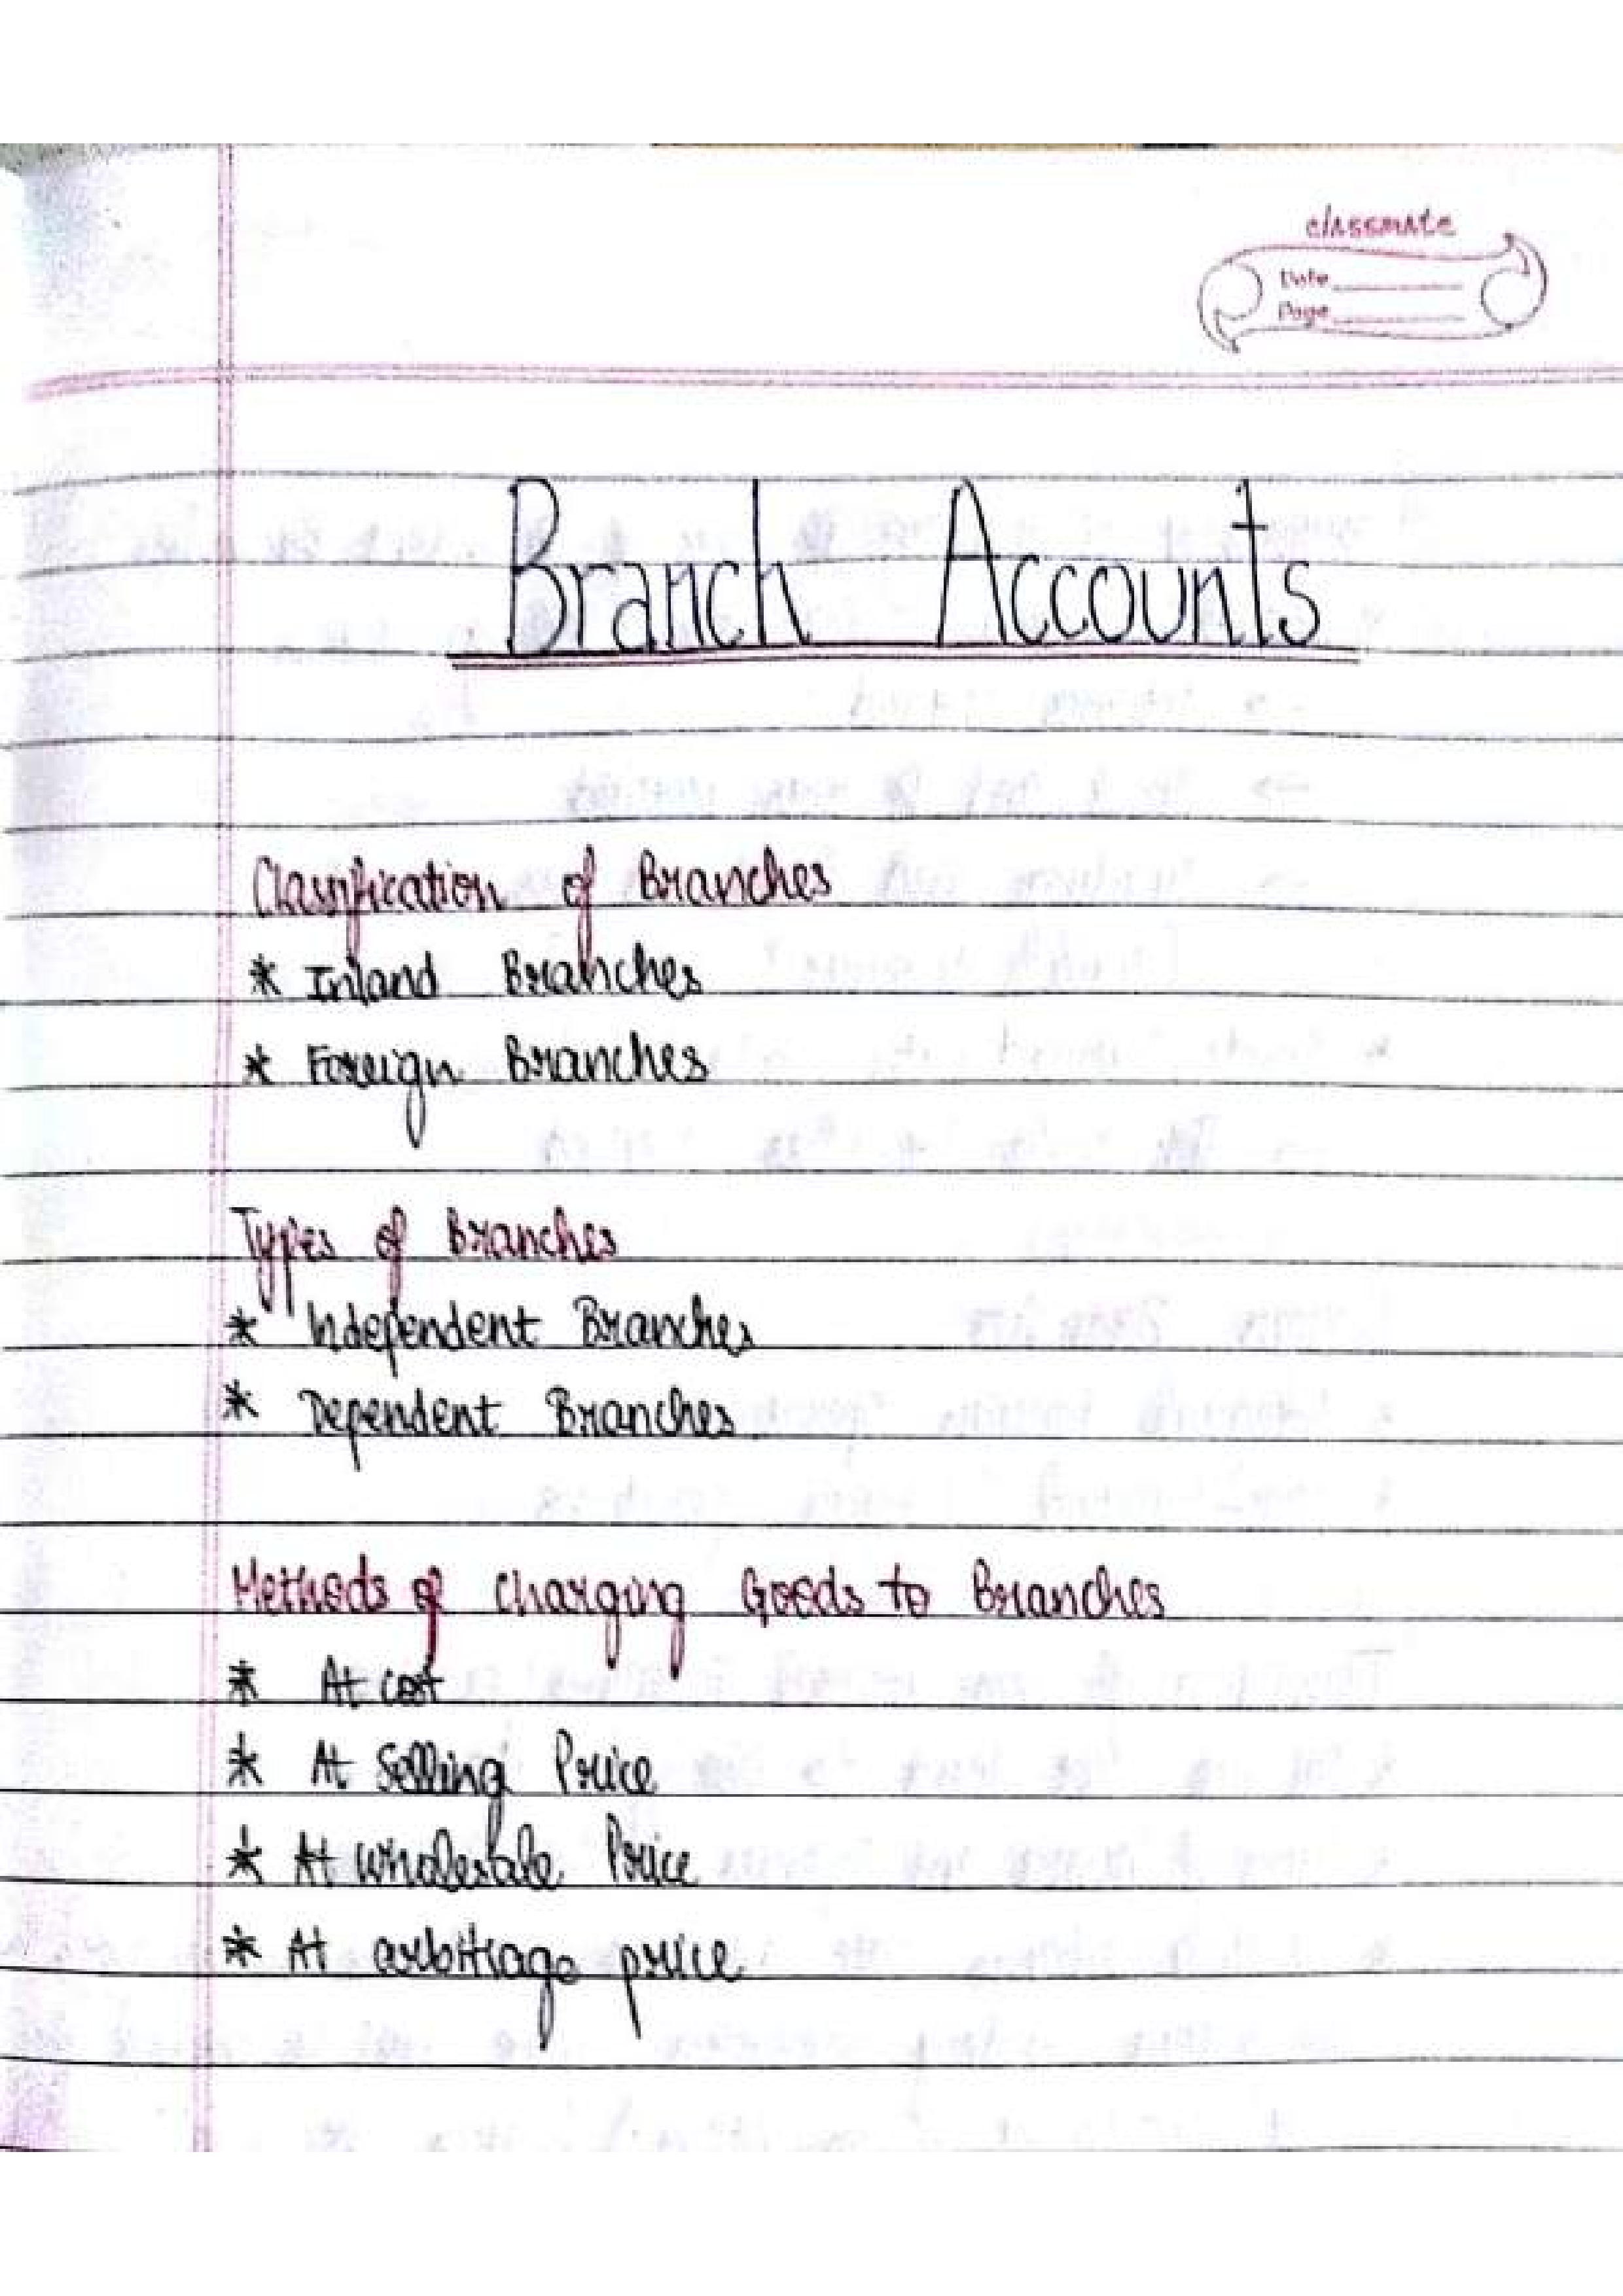 classmate
Date
Page
Branch Accounts
Classification of Branches
* Inland Branches
* Foreign Branches
Types of Branches
* Independent Branches
* Dependent Branches
Methods of charging Goods to Branches
* At cost
* At Selling Price
* At wholesale Price
* At arbitrage price